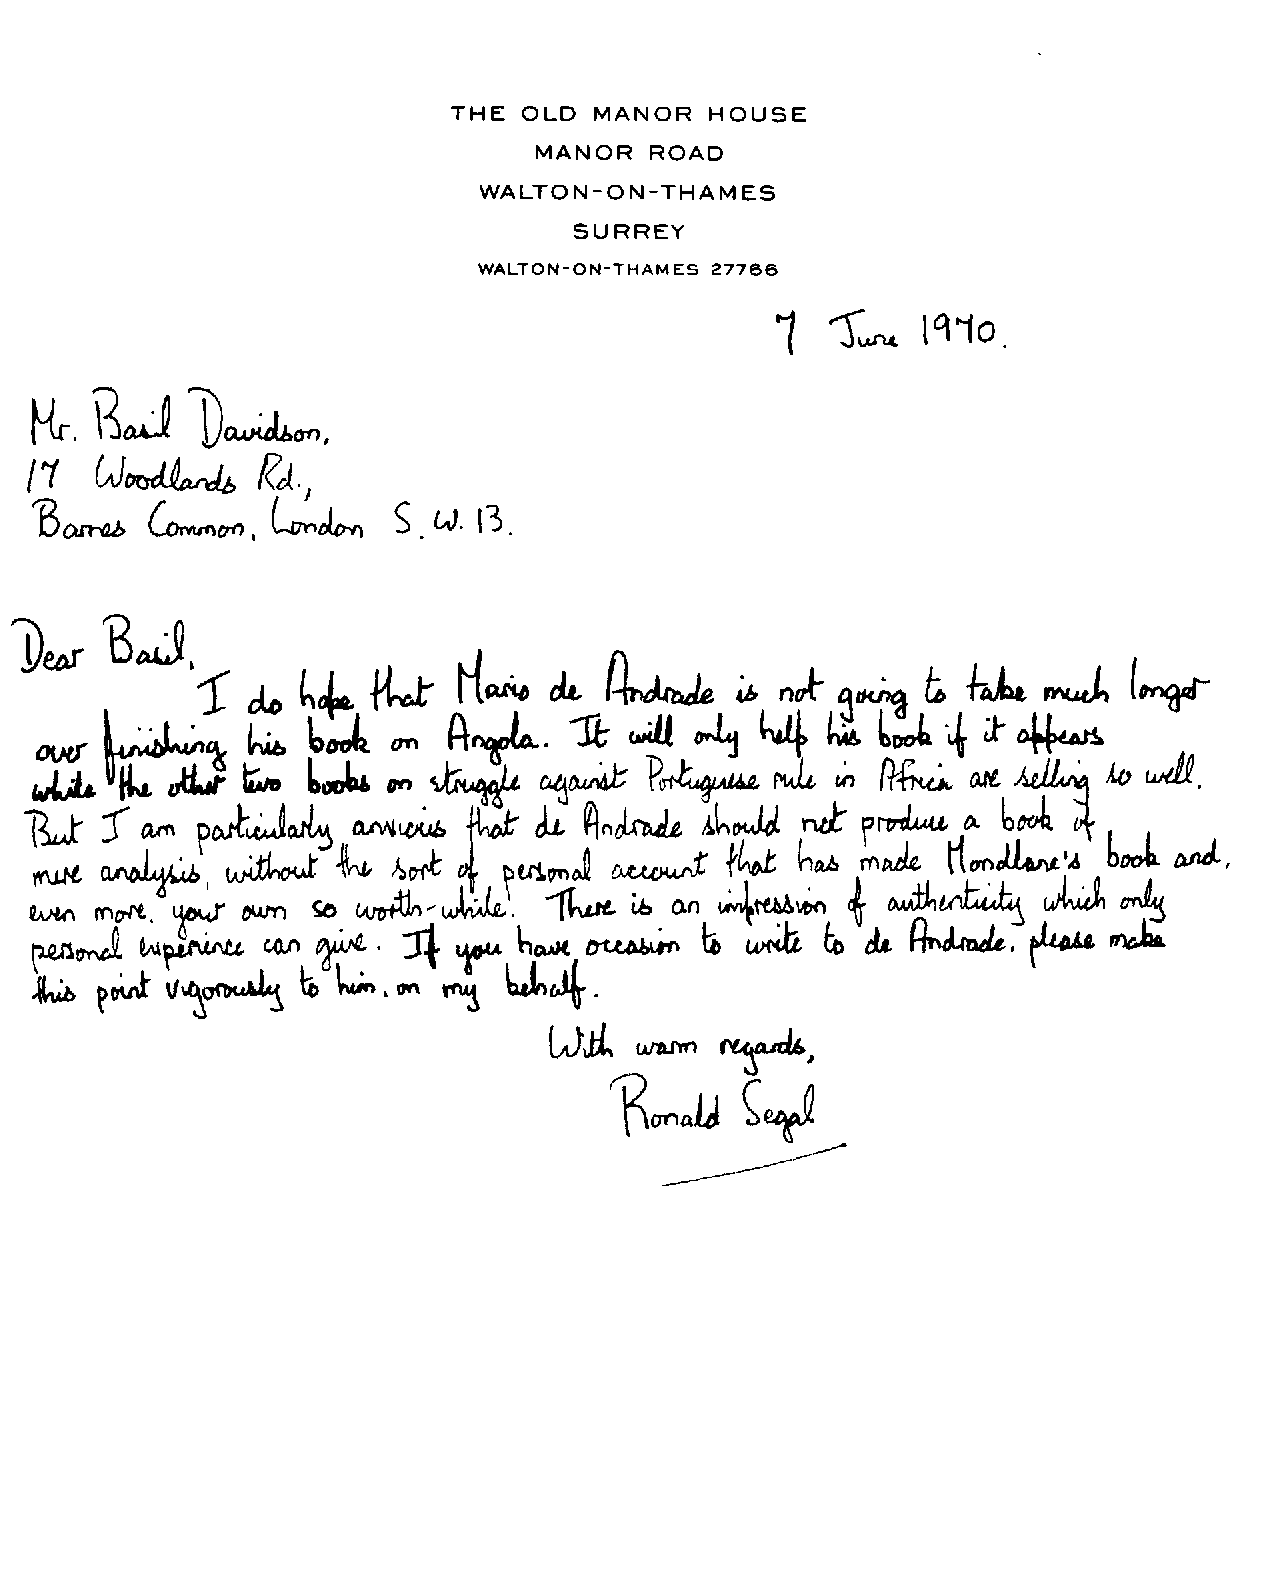 THE OLD MANOR HOUSE
MANOR ROAD
WALTON-ON-THAMES
SURREY
WALTON-ON-THAMES 27766
7 June 1970.
Mr. Basil Davidson,
17 Woodlands Rd.,
Barnes Common, London S.W.13.
Dear Basil,
I do hope that Mario de Andrade is not going to take much longer
over finishing his book on Angola. It will only help his book if it appears
while the other two books on struggle against Portuguese rule in Africa are selling so well.
But I am particularly anxious that de Andrade should not produce a book of
mere analysis, without the sort of personal account that has made Mondlane's book and,
even more, your own so worth-while. There is an impression of authenticity which only
personal experience can give. If you have occasion to write to de Andrade, please make
this point vigorously to him, on my behalf.
With warm regards,
Ronald Segal